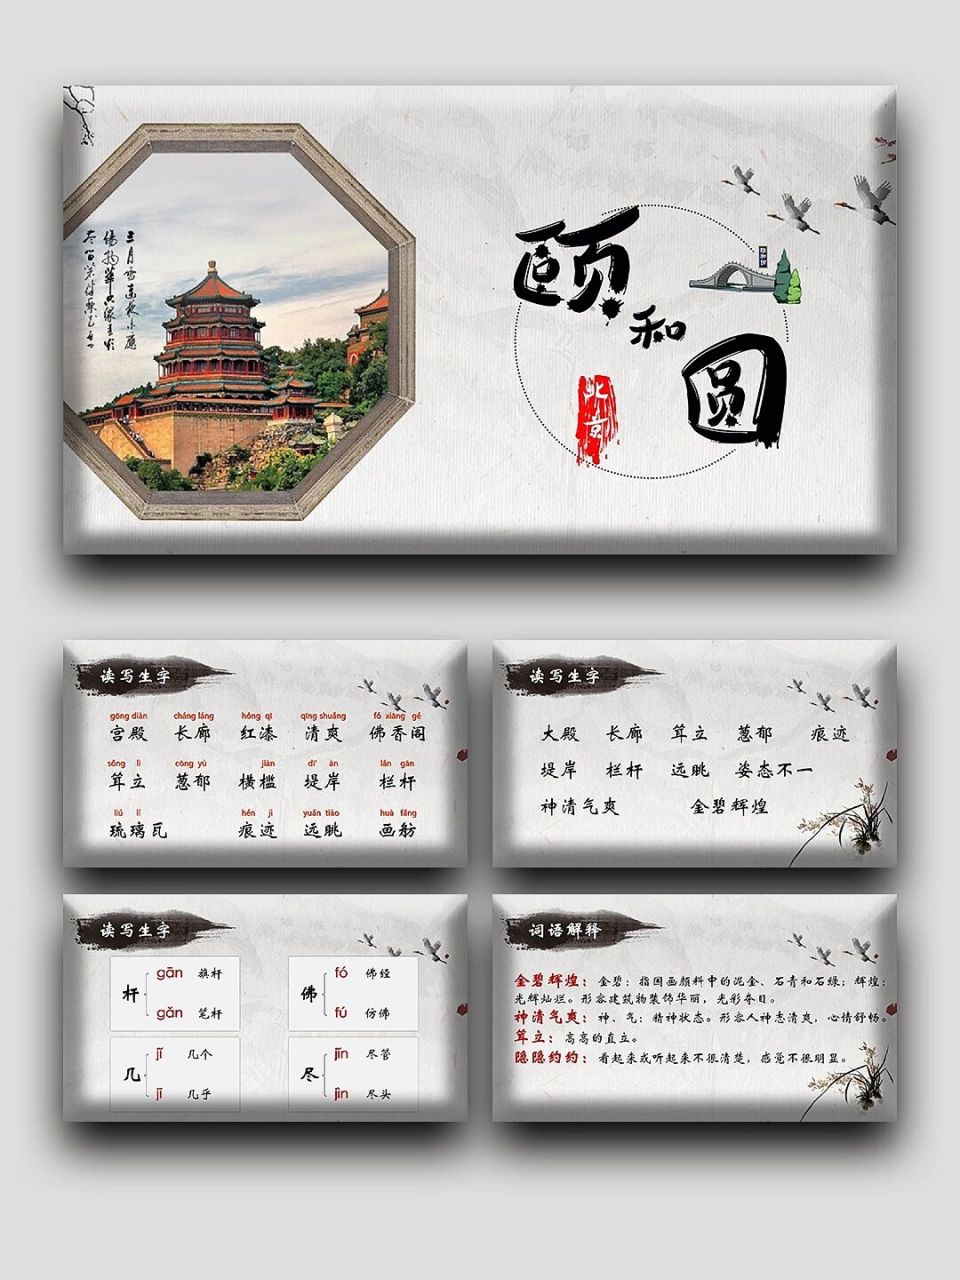 颐
和
圆
北京
读写生字
gōng diàn cháng láng hóng qī qīng shuǎng fó xiāng gé
宫殿 长廊 红漆 清爽 佛香阁
sǒng lì cōng yù jiàn dī àn lán gān
耸立 葱郁 横槛 堤岸 栏杆
liú lí hén jì yuǎn tiào huà fǎng
琉璃瓦 痕迹 远眺 画舫
读写生字
大殿 长廊 耸立 葱郁 痕迹
堤岸 栏杆 远眺 姿态不一
神清气爽 金碧辉煌
读写生字
杆
gān 旗杆
gǎn 笔杆
佛
fó 佛经
fú 仿佛
几
jǐ 几个
jī 几乎
尽
jǐn 尽管
jìn 尽头
词语解释
金碧辉煌：金碧：指国画颜料中的泥金、石青和石绿；辉煌：
光辉灿烂。形容建筑物装饰华丽，光彩夺目。
神清气爽：神、气：精神状态。形容人神志清爽，心情舒畅。
耸立：高高的直立。
隐隐约约：看起来或听起来不很清楚，感觉不很明显。